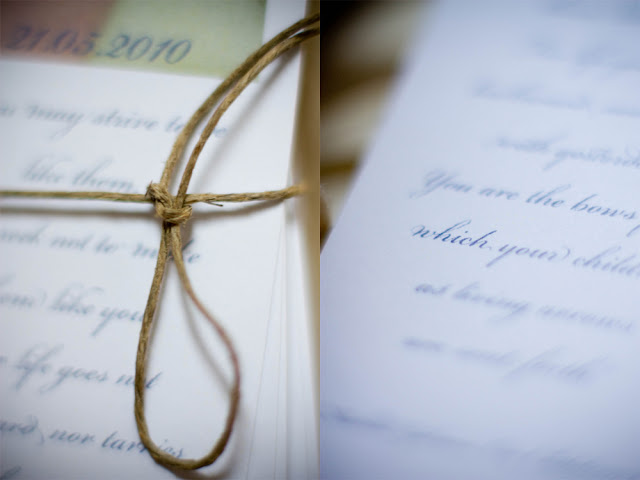 21.05.2010
you may strive to be
like them
seek not to make
like you
life goes not
nor tarries
with yesterday
You are the bows
which your child
as living arrows
are sent forth